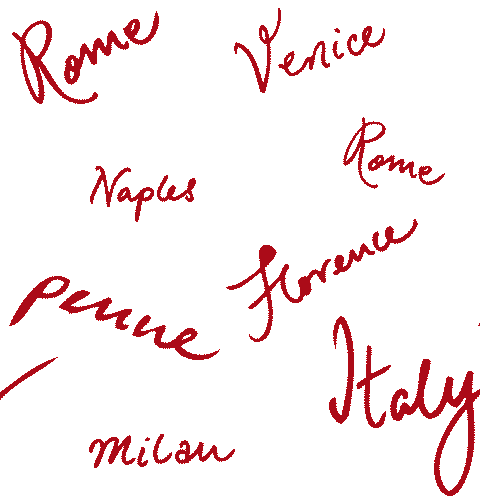 Rome
Venice
Rome
Naples
Florence
Penne
Italy
Milan